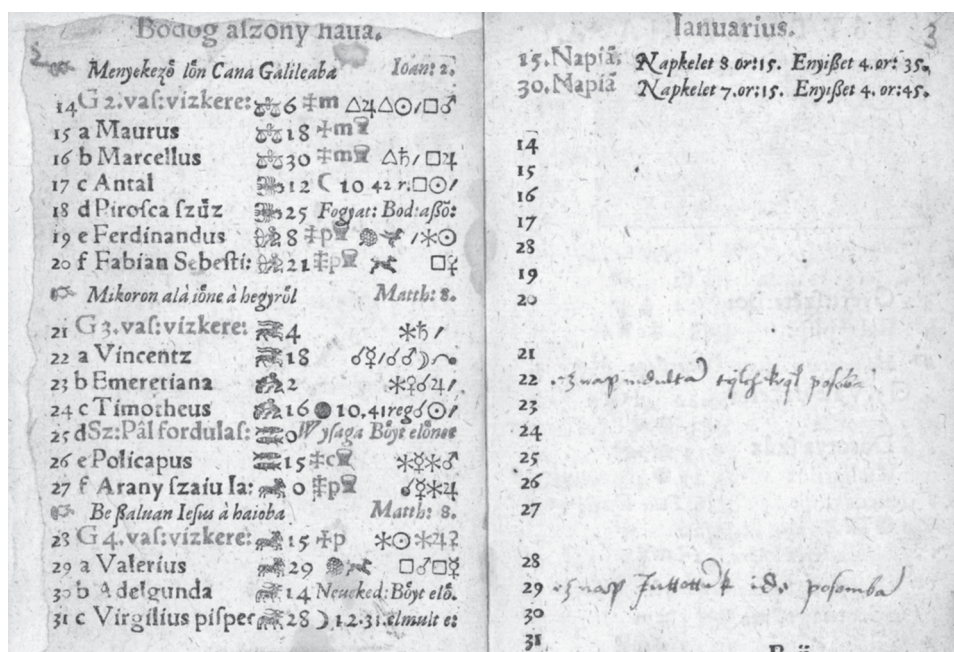 Bodog aſzony haua.
Menyekezȍ lȍn Cana Galileaba Ioan: 2.
14 G 2.vaſ:vizkere: ♎ 6 ‡m △♃△☉/□♂
15 a Maurus ♎ 18 ‡m
16 b Marcellus ♎ 30 ‡m △♄/ □♃
17 c Antal ♏ 12 ☾ 10 42 r:□☉/
18 d Piroſca ſzűz ♏ 25 Fogyat: Bod:aßȍ:
19 e Ferdinandus ♐ 8 ‡p /⚹☉
20 f Fabian Sebeſti: ♐ 21 ‡p □♀
Mikoron alá iȍne à hegyrȍl Matth: 8.
21 G 3.vaſ:vizkere: 4 ⚹♄/
22 a Vincentz 18 ☌☿/☌♂☽
23 b Emeretiana ♒ 2 ⚹♀☌♃/
24 c Timotheus ♒ 16 ● 10,41 reg☌☉/
25 d Sz:Pâl fordulaſ: ♓ 0 Wyſaga Bȍyt elȍnet
26 e Policapus ♓ 15 ‡c ⚹☿⚹♂
27 f Arany ſzaiu Ia: 0 ‡p ☌☿⚹♃
Be ßaluan Ieſus à haioba Matth: 8.
28 G 4.vaſ:vizkere: 15 ‡p ⚹☉ ⚹♃♀
29 a Valerius 29 □♂□☿
30 b Adelgunda 14 Neueked: Bȍyt elȍ.
31 c Virgilius piſpec 28 ☽ 1.2.31.elmult e:
Ianuarius. 3
15. Napiā: Napkelet 8.or:15. Enyißet 4.or: 35.
30. Napiā Napkelet 7.or:15. Enyißet 4.or:45.
14
15
16
17
28
19
20
21
22 ez nap indulta
23
24
25
26
27
28
29 ez nap Jutottak ide posomba
30
31